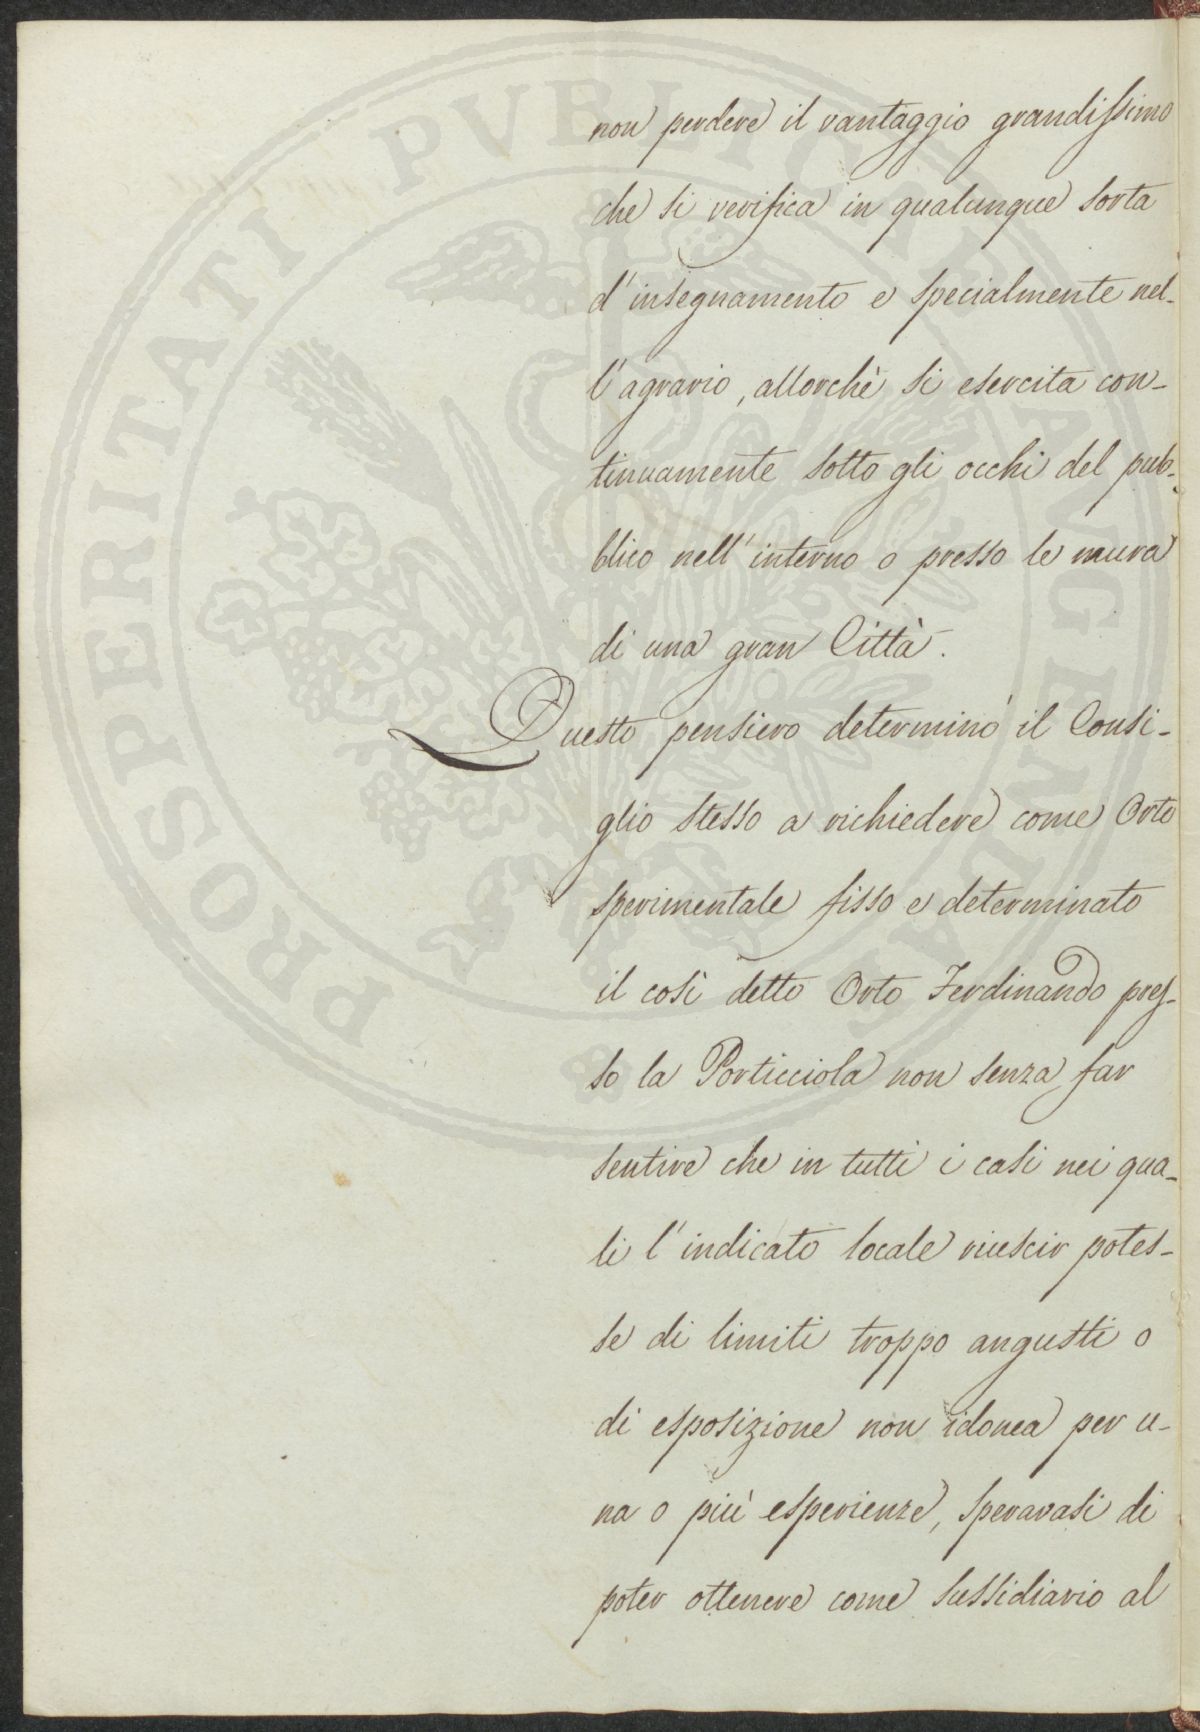 non perdere il vantaggio grandissimo
che si verifica in qualunque sorta
d'insegnamento e specialmente nel-
l'agrario, allorchè si esercita con-
tinuamente sotto gli occhi del pub-
blico nell'interno o presso le mura
di una gran Città.
Questo pensiero determinò il Consi-
glio stesso a richiedere come Orto
sperimentale fisso e determinato
il così detto Orto Ferdinando pres-
so la Porticciola non senza far
sentire che in tutti i casi nei qua-
li l'indicato locale riuscir potes-
se di limiti troppo angusti o
di esposizione non idonea per u-
na o più esperienze, speravasi di
poter ottenere come sussidiario al
PROSPERITATI PVBLICAE AVGENDAE